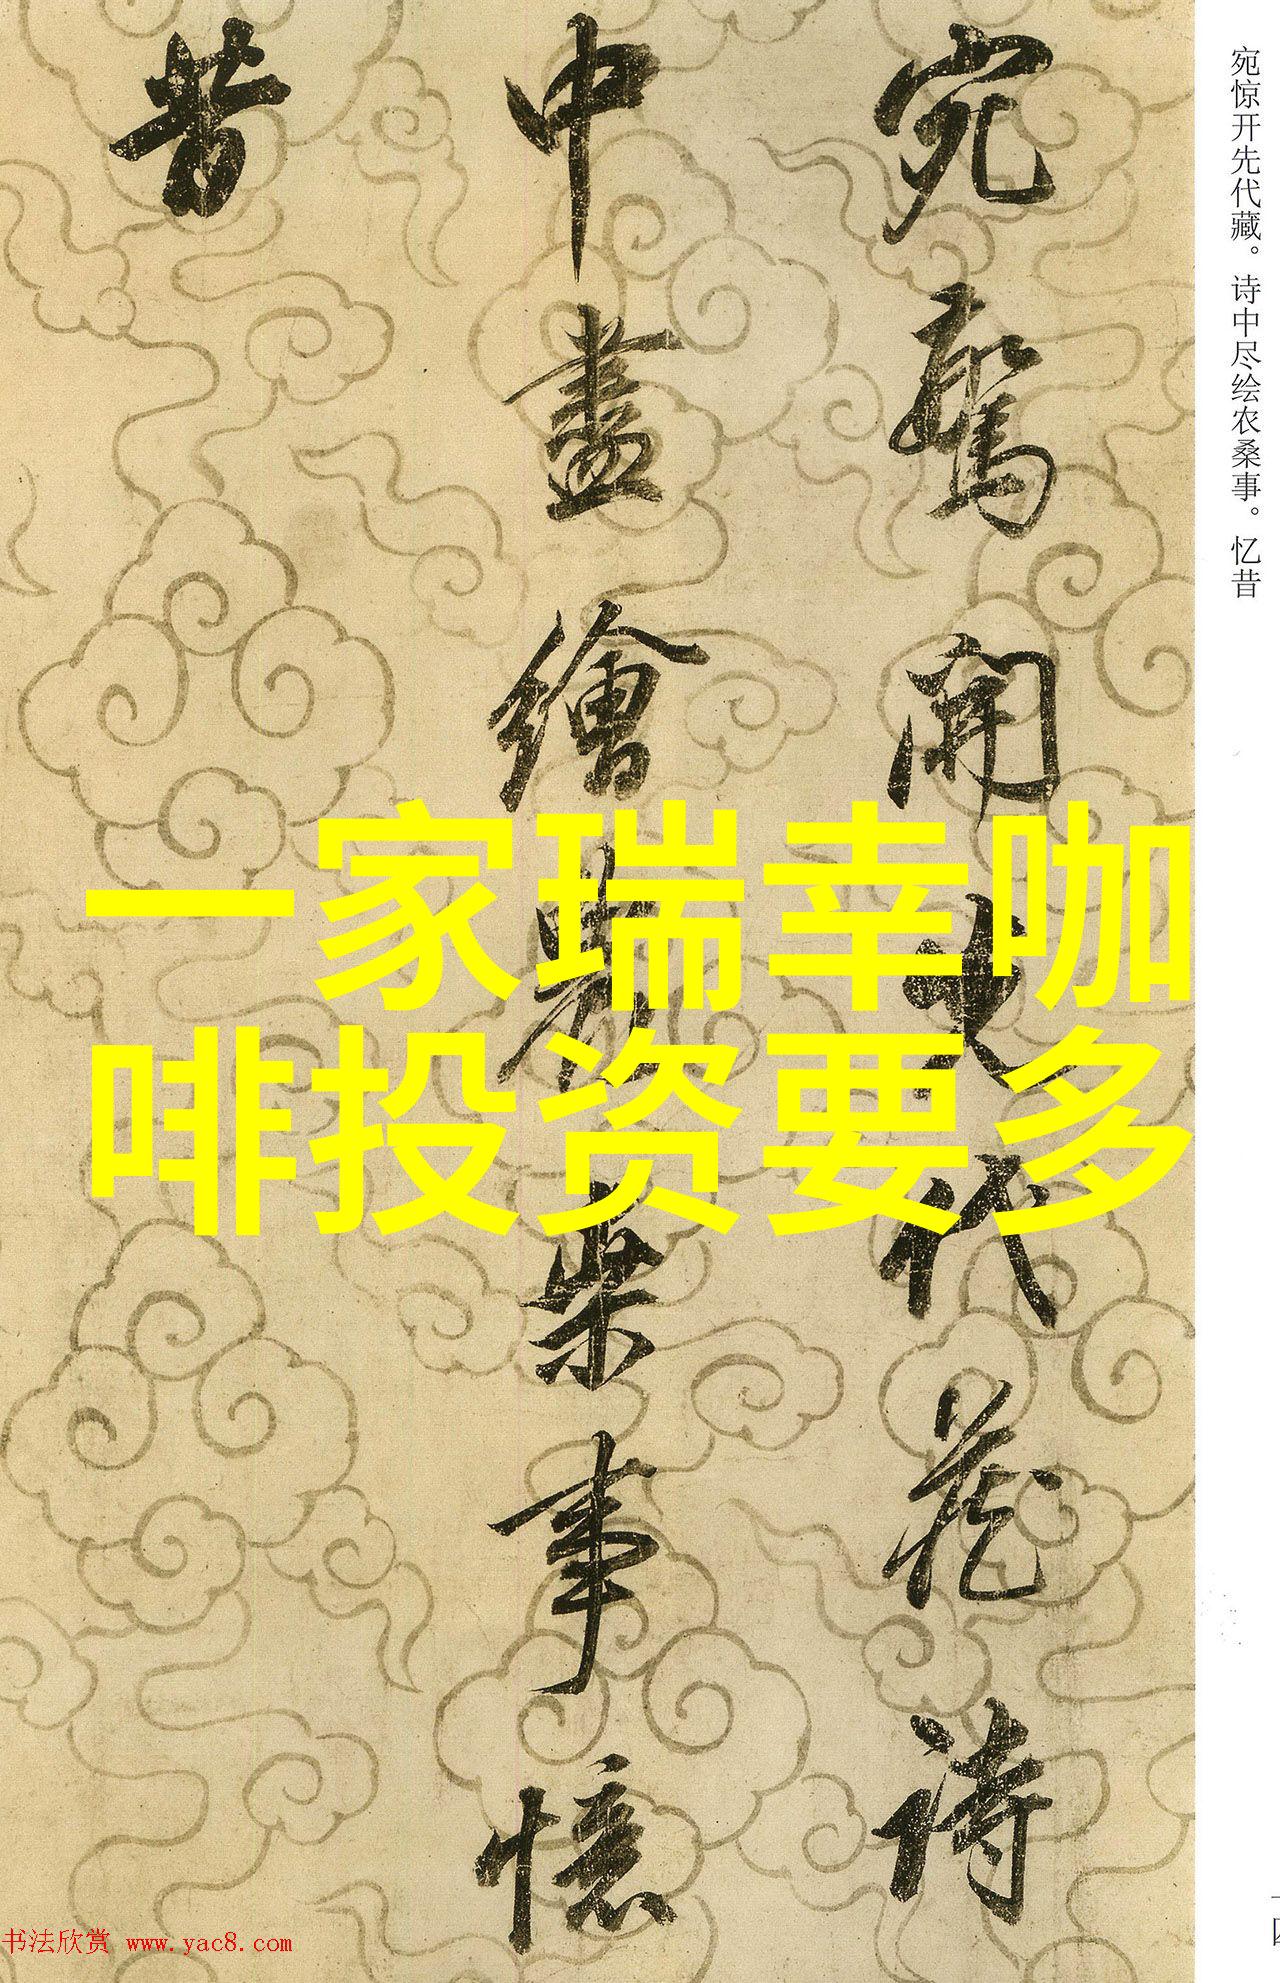 宛驚開先代藏詩
中盡繪農桒事憶
昔
宛惊开先代藏。诗中尽绘农桑事。忆昔
一家瑞幸咖
啡投资要多
书法欣赏 www.yac8.com